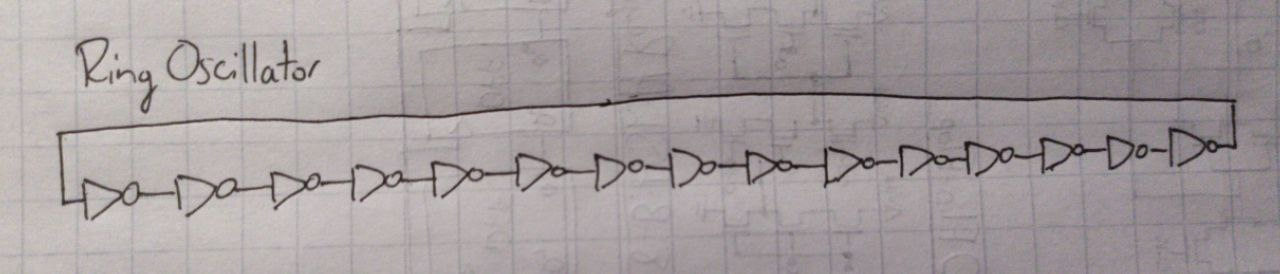 Ring Oscillator